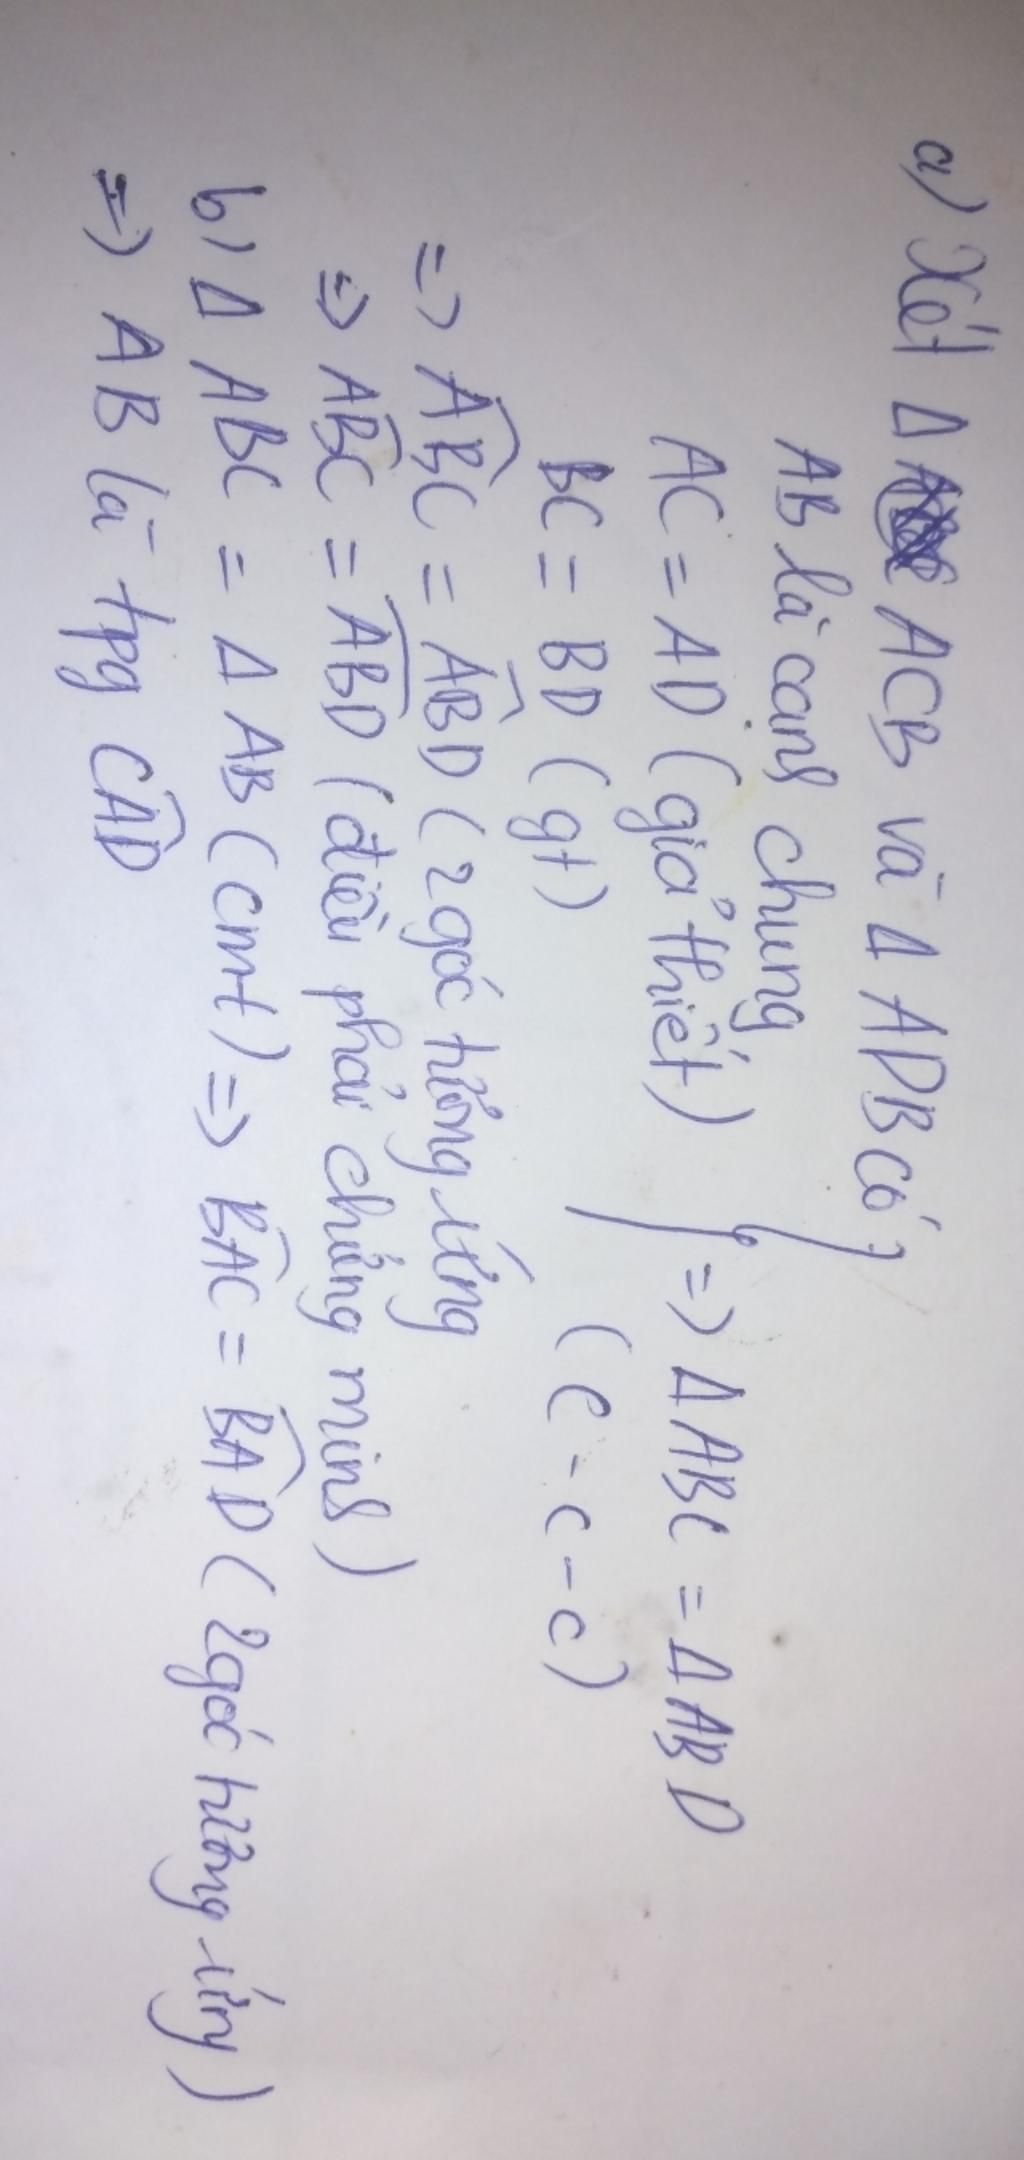 a) Xét Δ ACB và Δ ADB có
AB là cạnh chung
AC = AD (giả thiết) => Δ ABC = Δ ABD
BC = BD (gt) (c-c-c)
=> ABC = ABD (2 góc tương ứng
=> ABC = ABD (điều phải chứng minh)
b) Δ ABC = Δ AB (cmt) => BAC = BAD (2 góc tương ứng)
=> AB là tpg CAD